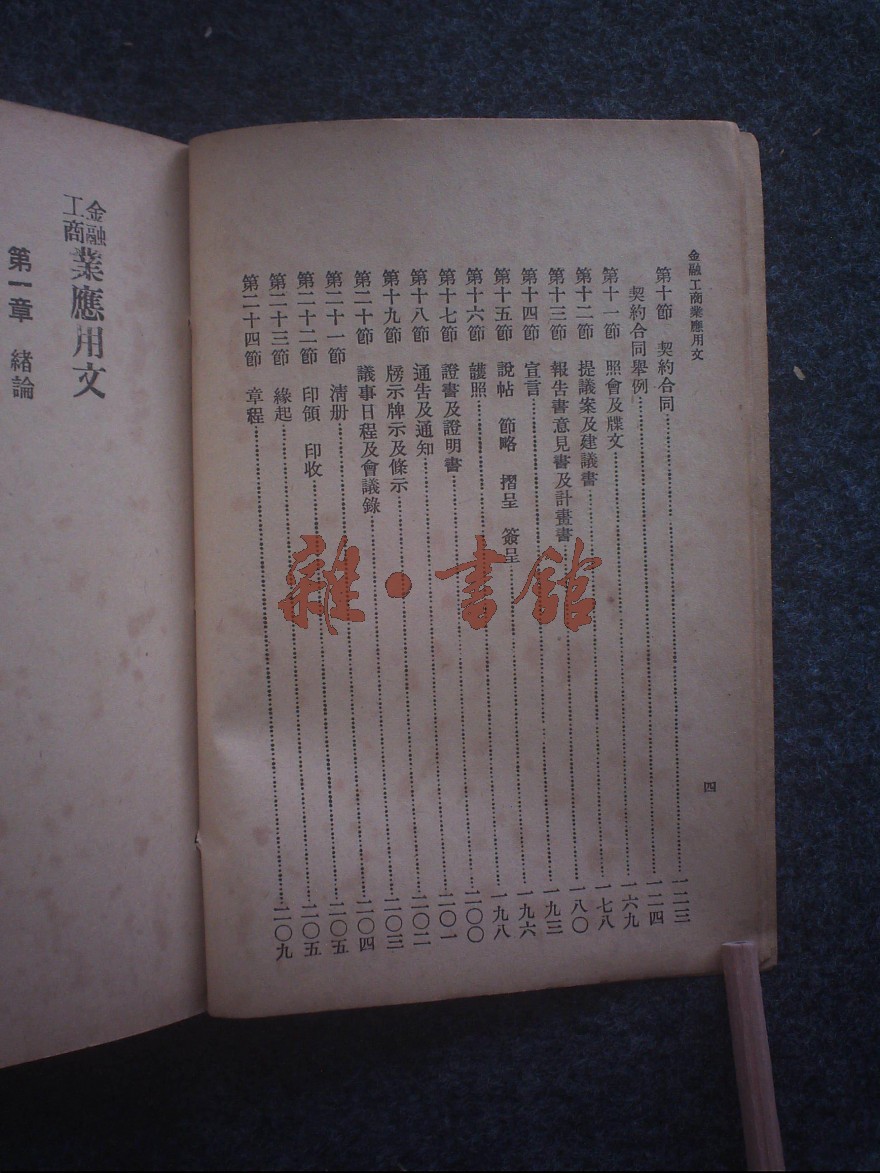 金融工商業應用文
第十節　契約合同……一二三
契約合同舉例……一二四
第十一節　照會及牒文……一六九
第十二節　提議案及建議書……一七八
第十三節　報告書意見書及計畫書……一八〇
第十四節　宣言……一九三
第十五節　說帖　節略　摺呈　簽呈……一九六
第十六節　護照……一九八
第十七節　證書及證明書……二〇〇
第十八節　通告及通知……二〇一
第十九節　牓示牌示及條示……二〇二
第二十節　議事日程及會議錄……二〇三
第二十一節　清册……二〇四
第二十二節　印領　印收……二〇五
第二十三節　緣起……二〇五
第二十四節　章程……二〇九
四
金融工商業應用文
第一章　緒論
雜·書館